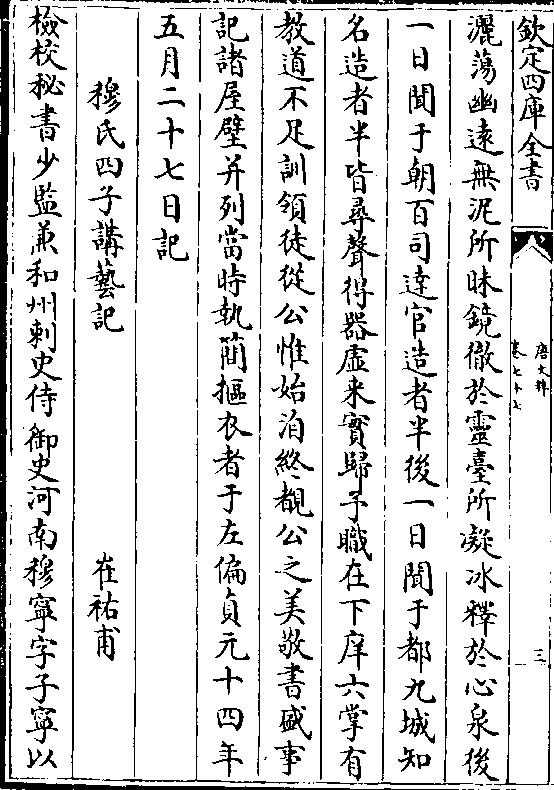 欽定四庫全書
唐文粹
卷七十七
三
灑蕩幽遠無泥所昧鏡徹於靈臺所凝冰釋於心泉後
一日聞于朝百司達官造者半後一日聞于都九城知
名造者半皆尋聲得器虛来實歸予職在下庠六掌有
教道不足訓領徒從公惟始洎終覩公之美敬書盛事
記諸屋壁并列當時執簡摳衣者于左偏貞元十四年
五月二十七日記
穆氏四子講藝記
崔祐甫
檢校秘書少監兼和州刺史侍御史河南穆寧字子寧以